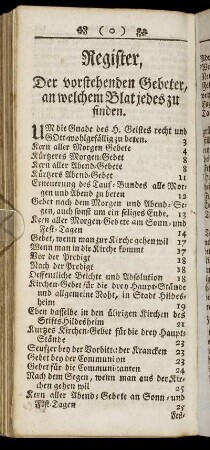 ( o )
Register,
Der vorstehenden Gebeter,
an welchem Blat jedes zu
finden.
UM die Gnade des H. Geistes recht und
GOtt-wohlgefällig zu beten. 3
Kern aller Morgen Gebete 4
Kürtzeres Morgen-Gebet 8
Kern aller Abend-Gebete 8
Kürtzers Abend-Gebet 11
Erneuerung des Tauf-Bundes alle Mor-
gen und Abend zu beten 12
Gebet nach dem Morgen und Abend-Se-
gen, auch sonst um ein seliges Ende. 13
Kern aller Morgen-Gebete am Sonn- und
Fest-Tagen 14
Gebet, wenn man zur Kirche gehen wil 17
Wenn man in die Kirche kommt 17
Vor der Predigt 18
Nach der Predigt 18
Oeffentliche Beichte und Absolution 18
Kirchen-Gebet für die drey Haupt-Stände
und allgemeine Noht, in Stadt Hildes-
heim 19
Eben dasselbe in den übrigen Kirchen des
Stifts Hildesheim 21
Kurtzes Kirchen-Gebet für die drey Haupt-
Stände 23
Seufzer bey der Vorbitte der Krancken 23
Gebet bey der Communion 24
Gebet für die Communicanten 24
Nach dem Segen, wenn man aus der Kir-
chen gehen wil 25
Kern aller Abend-Gebete an Sonn- und
Fest-Tagen 25